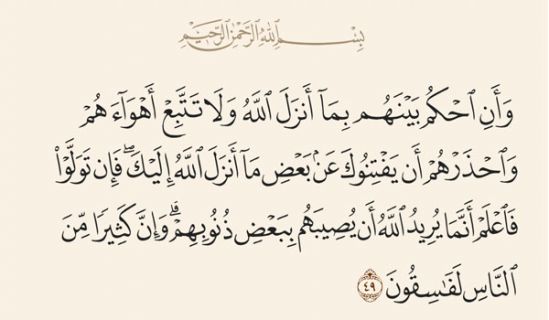 بِسْمِ ٱللَّهِ ٱلرَّحْمَٰنِ ٱلرَّحِيمِ
وَأَنِ ٱحْكُم بَيْنَهُم بِمَآ أَنزَلَ ٱللَّهُ وَلَا تَتَّبِعْ أَهْوَآءَهُمْ
وَٱحْذَرْهُمْ أَن يَفْتِنُوكَ عَنۢ بَعْضِ مَآ أَنزَلَ ٱللَّهُ إِلَيْكَ ۖ فَإِن تَوَلَّوْا۟
فَٱعْلَمْ أَنَّمَا يُرِيدُ ٱللَّهُ أَن يُصِيبَهُم بِبَعْضِ ذُنُوبِهِمْ ۗ وَإِنَّ كَثِيرًا مِّنَ
ٱلنَّاسِ لَفَٰسِقُونَ ٤٩